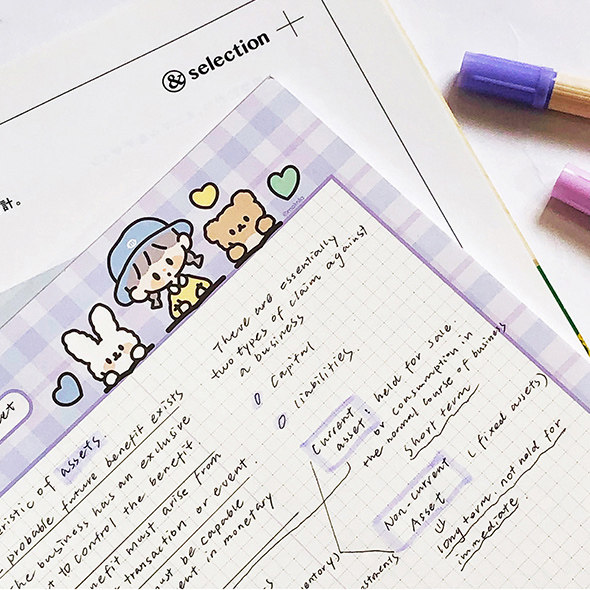 & selection
計。
There are essentially
two types of claim against
a business
Capital
Liabilities
Current
asset : held for sale
or consumption in
the normal course of business
short term
Non-current
Asset
(fixed assets)
long term, not held for
immediate
ristic of assets
probable future benefit exists
he business has an exclusive
to control the benefit
nefit must arise from
transaction or event
must be capable
ent in monetary